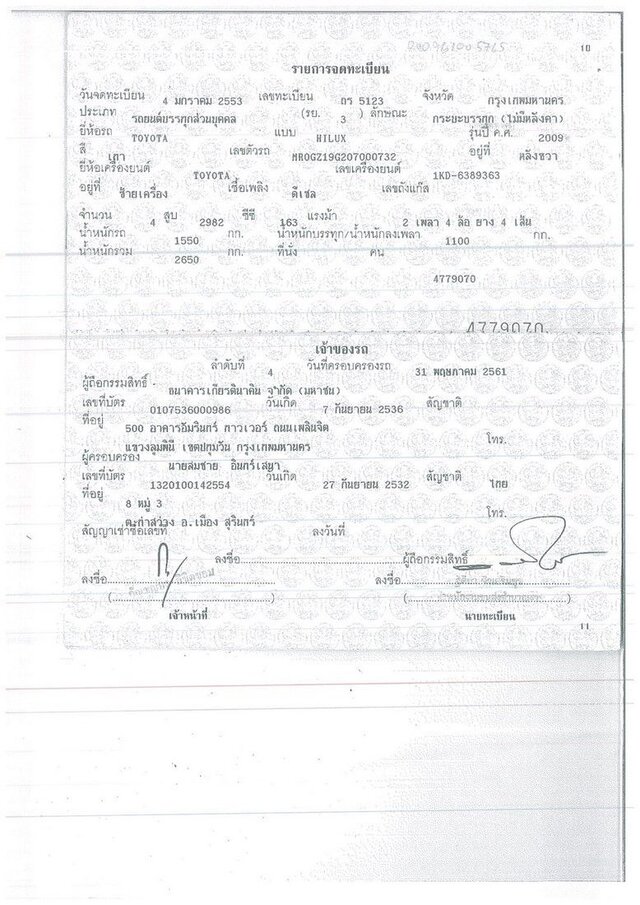 10
รายการจดทะเบียน
วันจดทะเบียน 4 มกราคม 2553 เลขทะเบียน ถร 5123 จังหวัด กรุงเทพมหานคร
ประเภท รถยนต์บรรทุกส่วนบุคคล (รย. 3 ) ลักษณะ กระบะบรรทุก (ไม่มีหลังคา)
ยี่ห้อรถ TOYOTA แบบ HILUX รุ่นปี ค.ศ. 2009
สี เทา เลขตัวรถ MR0GZ19G207000732 อยู่ที่ หลังขวา
ยี่ห้อเครื่องยนต์ TOYOTA เลขเครื่องยนต์ 1KD-6389363
อยู่ที่ ซ้ายเครื่อง เชื้อเพลิง ดีเซล เลขถังแก๊ส
จำนวน 4 สูบ 2982 ซีซี 163 แรงม้า 2 เพลา 4 ล้อ ยาง 4 เส้น
น้ำหนักรถ 1550 กก. น้ำหนักบรรทุก/น้ำหนักลงเพลา 1100 กก.
น้ำหนักรวม 2650 กก. ที่นั่ง คน
4779070
4779070
เจ้าของรถ
ลำดับที่ 4 วันที่ครอบครองรถ 31 พฤษภาคม 2561
ผู้ถือกรรมสิทธิ์ ธนาคารเกียรตินาคิน จำกัด (มหาชน)
เลขที่บัตร 0107536000986 วันเกิด 7 กันยายน 2536 สัญชาติ
ที่อยู่ 500 อาคารอัมรินทร์ ทาวเวอร์ ถนนเพลินจิต โทร.
แขวงลุมพินี เขตปทุมวัน กรุงเทพมหานคร
ผู้ครอบครอง นายสมชาย อินทร์เสนา
เลขที่บัตร 1320100142554 วันเกิด 27 กันยายน 2532 สัญชาติ ไทย
ที่อยู่ 8 หมู่ 3 โทร.
ต.ท่าสว่าง อ.เมือง สุรินทร์
สัญญาเช่าซื้อเลขที่ ลงวันที่
ลงชื่อ ผู้ถือกรรมสิทธิ์
ลงชื่อ ลงชื่อ
( ) ( )
เจ้าหน้าที่ นายทะเบียน
11